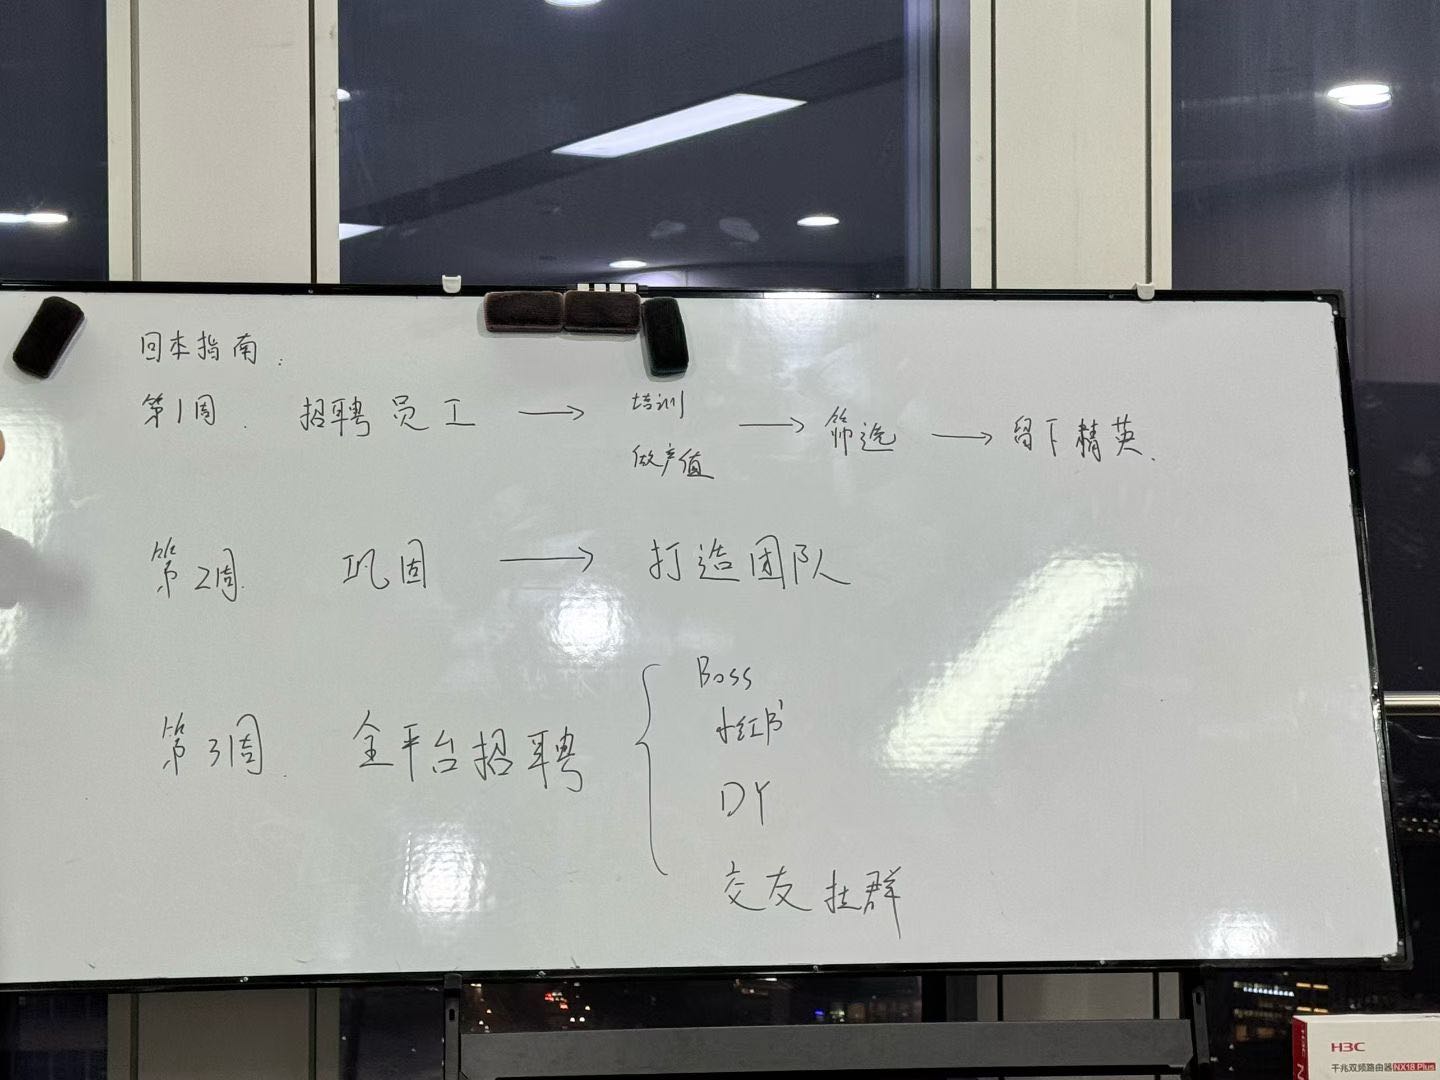 回本指南.
第1周. 招聘员工 → 培训 做产值 → 筛选 → 留下精英.
第2周. 巩固 → 打造团队
第3周. 全平台招聘 { Boss
小红书
DY
交友社群
H3C
千兆双频路由器 NX18 Plus